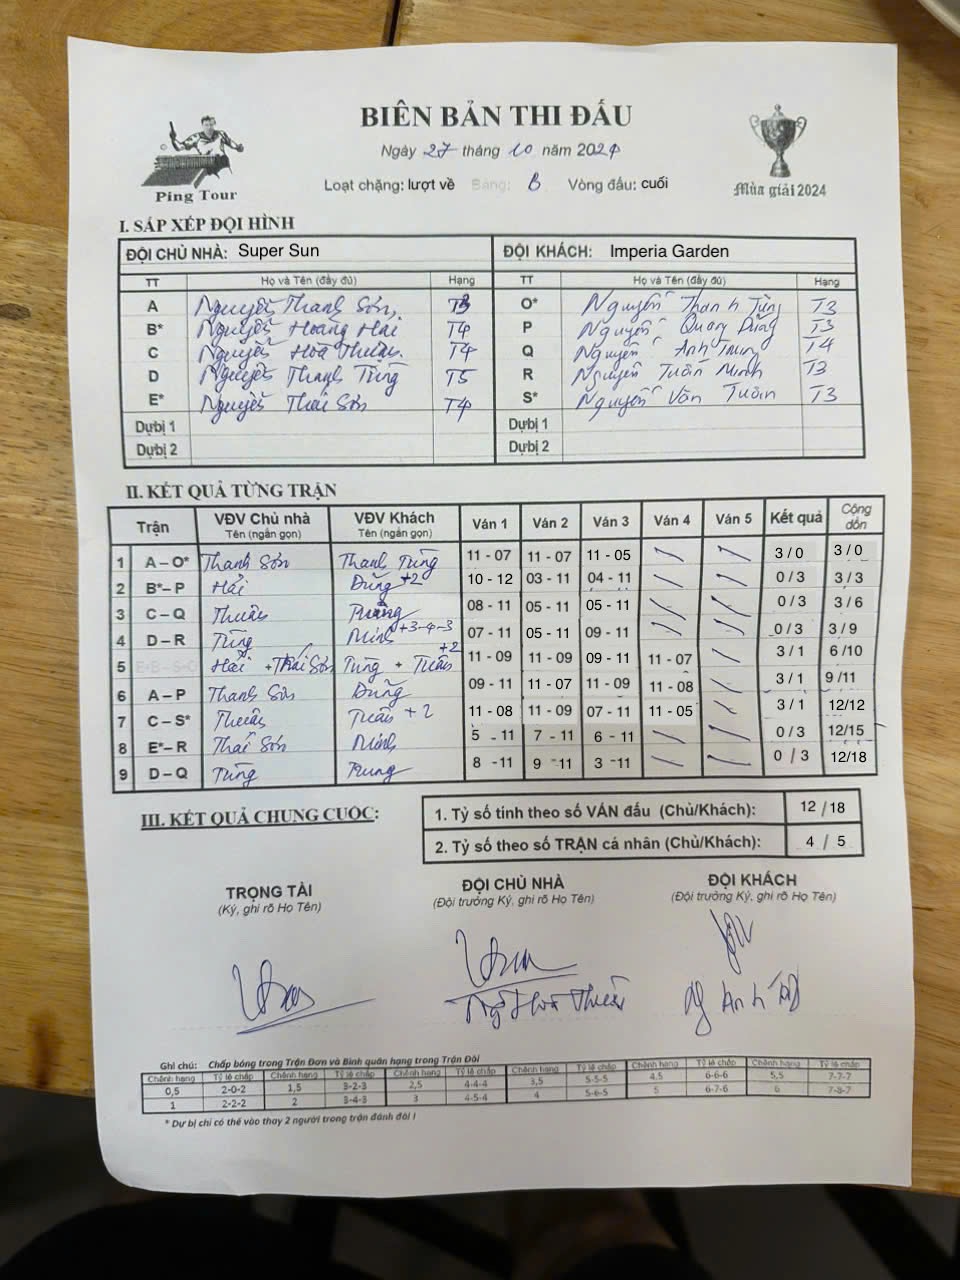 BIÊN BẢN THI ĐẤU
Ngày 27 tháng 10 năm 2024
Loạt chặng: lượt về Bảng: B Vòng đấu: cuối
Ping Tour
Mùa giải 2024
I. SẮP XẾP ĐỘI HÌNH
ĐỘI CHỦ NHÀ: Super Sun ĐỘI KHÁCH: Imperia Garden
TT Họ và Tên (đầy đủ) Hạng TT Họ và Tên (đầy đủ) Hạng
A Nguyễn Thanh Sơn T3 O* Nguyễn Thanh Tùng T3
B* Nguyễn Hoàng Hải T4 P Nguyễn Quang Dũng T3
C Nguyễn Hoà Thuận T4 Q Nguyễn Anh Trung T4
D Nguyễn Thanh Tùng T5 R Nguyễn Tuấn Minh T3
E* Nguyễn Thái Sơn T4 S* Nguyễn Văn Tuấn T3
Dự bị 1 Dự bị 1
Dự bị 2 Dự bị 2
II. KẾT QUẢ TỪNG TRẬN
Trận VĐV Chủ nhà Tên (ngắn gọn) VĐV Khách Tên (ngắn gọn) Ván 1 Ván 2 Ván 3 Ván 4 Ván 5 Kết quả Cộng dồn
1 A – O* Thanh Sơn Thanh Tùng 11 - 07 11 - 07 11 - 05 3 / 0 3 / 0
2 B* – P Hải Dũng +2 10 - 12 03 - 11 04 - 11 0 / 3 3 / 3
3 C – Q Thuận Trung 08 - 11 05 - 11 05 - 11 0 / 3 3 / 6
4 D – R Tùng Minh +3-4-3 07 - 11 05 - 11 09 - 11 0 / 3 3 / 9
5 E+B - S+O Hải + Thái Sơn Tùng + Tuấn +2 11 - 09 11 - 09 09 - 11 11 - 07 3 / 1 6 /10
6 A – P Thanh Sơn Dũng 09 - 11 11 - 07 11 - 09 11 - 08 3 / 1 9 /11
7 C – S* Thuận Tuấn +2 11 - 08 11 - 09 07 - 11 11 - 05 3 / 1 12/12
8 E* – R Thái Sơn Minh 5 - 11 7 - 11 6 - 11 0 / 3 12/15
9 D – Q Tùng Trung 8 - 11 9 - 11 3 - 11 0 / 3 12/18
III. KẾT QUẢ CHUNG CUỘC:
1. Tỷ số tính theo số VÁN đấu (Chủ/Khách): 12 / 18
2. Tỷ số theo số TRẬN cá nhân (Chủ/Khách): 4 / 5
TRỌNG TÀI ĐỘI CHỦ NHÀ ĐỘI KHÁCH
(Ký, ghi rõ Họ Tên) (Đội trưởng Ký, ghi rõ Họ Tên) (Đội trưởng Ký, ghi rõ Họ Tên)
Ng Hoà Thuận
Ghi chú: Chấp bóng trong Trận Đơn và Bình quân hạng trong Trận Đôi
Chênh hạng Tỷ lệ chấp Chênh hạng Tỷ lệ chấp Chênh hạng Tỷ lệ chấp Chênh hạng Tỷ lệ chấp Chênh hạng Tỷ lệ chấp Chênh hạng Tỷ lệ chấp
0,5 2-0-2 1,5 3-2-3 2,5 4-4-4 3,5 5-5-5 4,5 6-6-6 5,5 7-7-7
1 2-2-2 2 3-4-3 3 4-5-4 4 5-6-5 5 6-7-6 6 7-8-7
* Dự bị chỉ có thể vào thay 2 người trong trận đánh đôi !